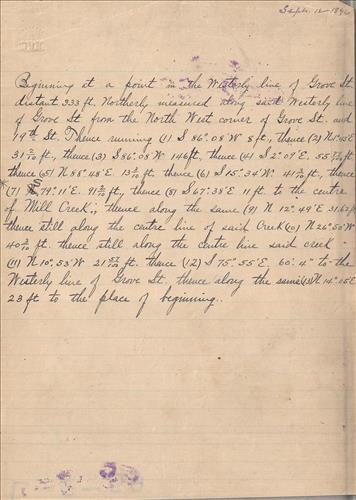 Sept. 12-1896
Beginning at a point in the Westerly line of Grove St.
distant 333 ft. Northerly measured along said Westerly line
of Grove St from the North West corner of Grove St. and
19th St. Thence running (1) S 86°.08' W 8 ft., thence (2) N
31 2/10 ft., thence (3) S 86°.08' W 146 ft, thence (4) S 2°.09' E. 55 ft.
thence (5) N 88°.48' E. 13 ft, thence (6) S 15°.34' W. 41 ft, thence
(7) 79°.11' E. 91 ft, thence (8) S 67°.38' E 11 ft. to the centre
of Mill Creek; thence along the same (9) N 12°.49' E 31.62 ft
thence still along the centre line of said Creek (10) N 26°.50' W
40 ft. thence still along the centre line said creek
(11) N 10°.53' W 21 ft. thence (12) S 75°.55' E. 60'.4" to the
Westerly line of Grove St. thence along the same (13) N 14°.05' E
23 ft to the place of beginning.